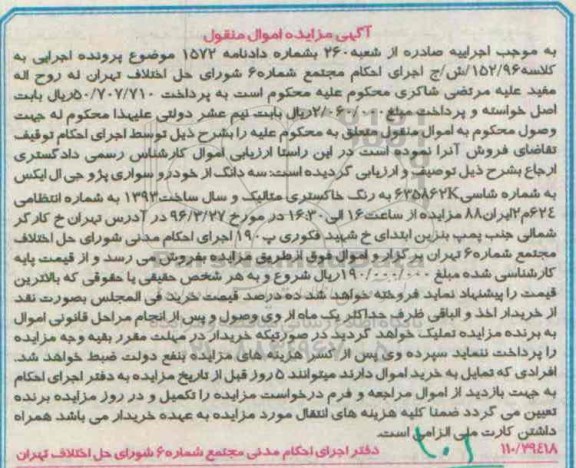 آگهی مزایده اموال منقول
به موجب اجراییه صادره از شعبه ۲۶۰ بشماره دادنامه ۱۵۷۲ موضوع پرونده اجرایی به
کلاسه ۱۵۲/۹۶/ش/ج اجرای احکام مجتمع شماره ۶ شورای حل اختلاف تهران له روح اله
مفید علیه مرتضی شاکری محکوم علیه محکوم است به پرداخت ۵۰/۷۰۷/۷۱۰ ریال بابت
اصل خواسته و پرداخت مبلغ ۲/۰۶۰/۰۰۰ ریال بابت نیم عشر دولتی علیهذا محکوم له جهت
وصول محکوم به اموال منقول متعلق به محکوم علیه را بشرح ذیل توسط اجرای احکام توقیف
تقاضای فروش آنرا نموده است در این راستا ارزیابی اموال کارشناس رسمی دادگستری
ارجاع بشرح ذیل توصیف و ارزیابی گردیده است: سه دانگ از خودرو سواری پژو جی ال ایکس
به شماره شاسی ۶۳۵۸۶۲K به رنگ خاکستری متالیک و سال ساخت ۱۳۹۳ به شماره انتظامی
۶۲۴م۲ایران۸۸ مزایده از ساعت ۱۶ الی ۱۶:۳۰ در مورخ ۹۶/۳/۲۷ در آدرس تهران خ کارگر
شمالی جنب پمپ بنزین ابتدای خ شهید فکوری پ ۱۹۰ اجرای احکام مدنی شورای حل اختلاف
مجتمع شماره ۶ تهران برگزار و اموال فوق از طریق مزایده بفروش می رسد و از قیمت پایه
کارشناسی شده مبلغ ۱۹۰/۰۰۰/۰۰۰ ریال شروع و به هر شخص حقیقی یا حقوقی که بالاترین
قیمت را پیشنهاد نماید فروخته خواهد شد ده درصد قیمت خرید فی المجلس بصورت نقد
از خریدار اخذ و الباقی ظرف حداکثر یک ماه از وی وصول و پس از انجام مراحل قانونی اموال
به برنده مزایده تملیک خواهد گردید در صورتیکه خریدار در مهلت مقرر بقیه وجه مزایده
را پرداخت ننماید سپرده وی پس از کسر هزینه های مزایده بنفع دولت ضبط خواهد شد.
افرادی که تمایل به خرید اموال دارند میتوانند ۵ روز قبل از تاریخ مزایده به دفتر اجرای احکام
به جهت بازدید از اموال مراجعه و فرم درخواست مزایده را تکمیل و در روز مزایده برنده
تعیین می گردد ضمنا کلیه هزینه های انتقال مورد مزایده به عهده خریدار می باشد همراه
داشتن کارت ملی الزامی است.
۱۱۰/۲۹۴۱۸ دفتر اجرای احکام مدنی مجتمع شماره ۶ شورای حل اختلاف تهران